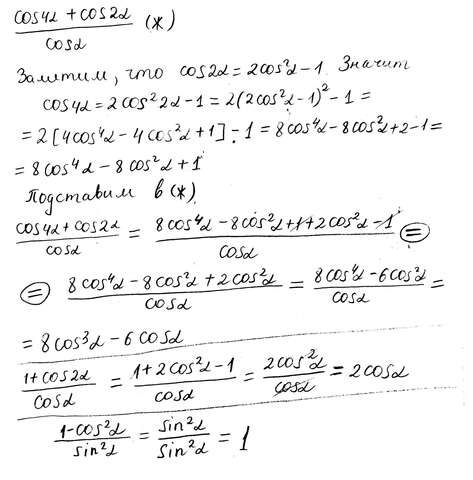 (cos4α + cos2α)/cosα (*)
Заметим, что cos2α = 2cos²α – 1. Значит
cos4α = 2cos²2α – 1 = 2(2cos²α – 1)² – 1 =
= 2[4cos⁴α – 4cos²α + 1] – 1 = 8cos⁴α – 8cos²α + 2 – 1 =
= 8cos⁴α – 8cos²α + 1
Подставим в (*)
(cos4α + cos2α)/cosα = (8cos⁴α – 8cos²α + 1 + 2cos²α – 1)/cosα =
= (8cos⁴α – 8cos²α + 2cos²α)/cosα = (8cos⁴α – 6cos²α)/cosα =
= 8cos³α – 6cosα
(1 + cos2α)/cosα = (1 + 2cos²α – 1)/cosα = 2cos²α/cosα = 2cosα
(1 – cos²α)/sin²α = sin²α/sin²α = 1